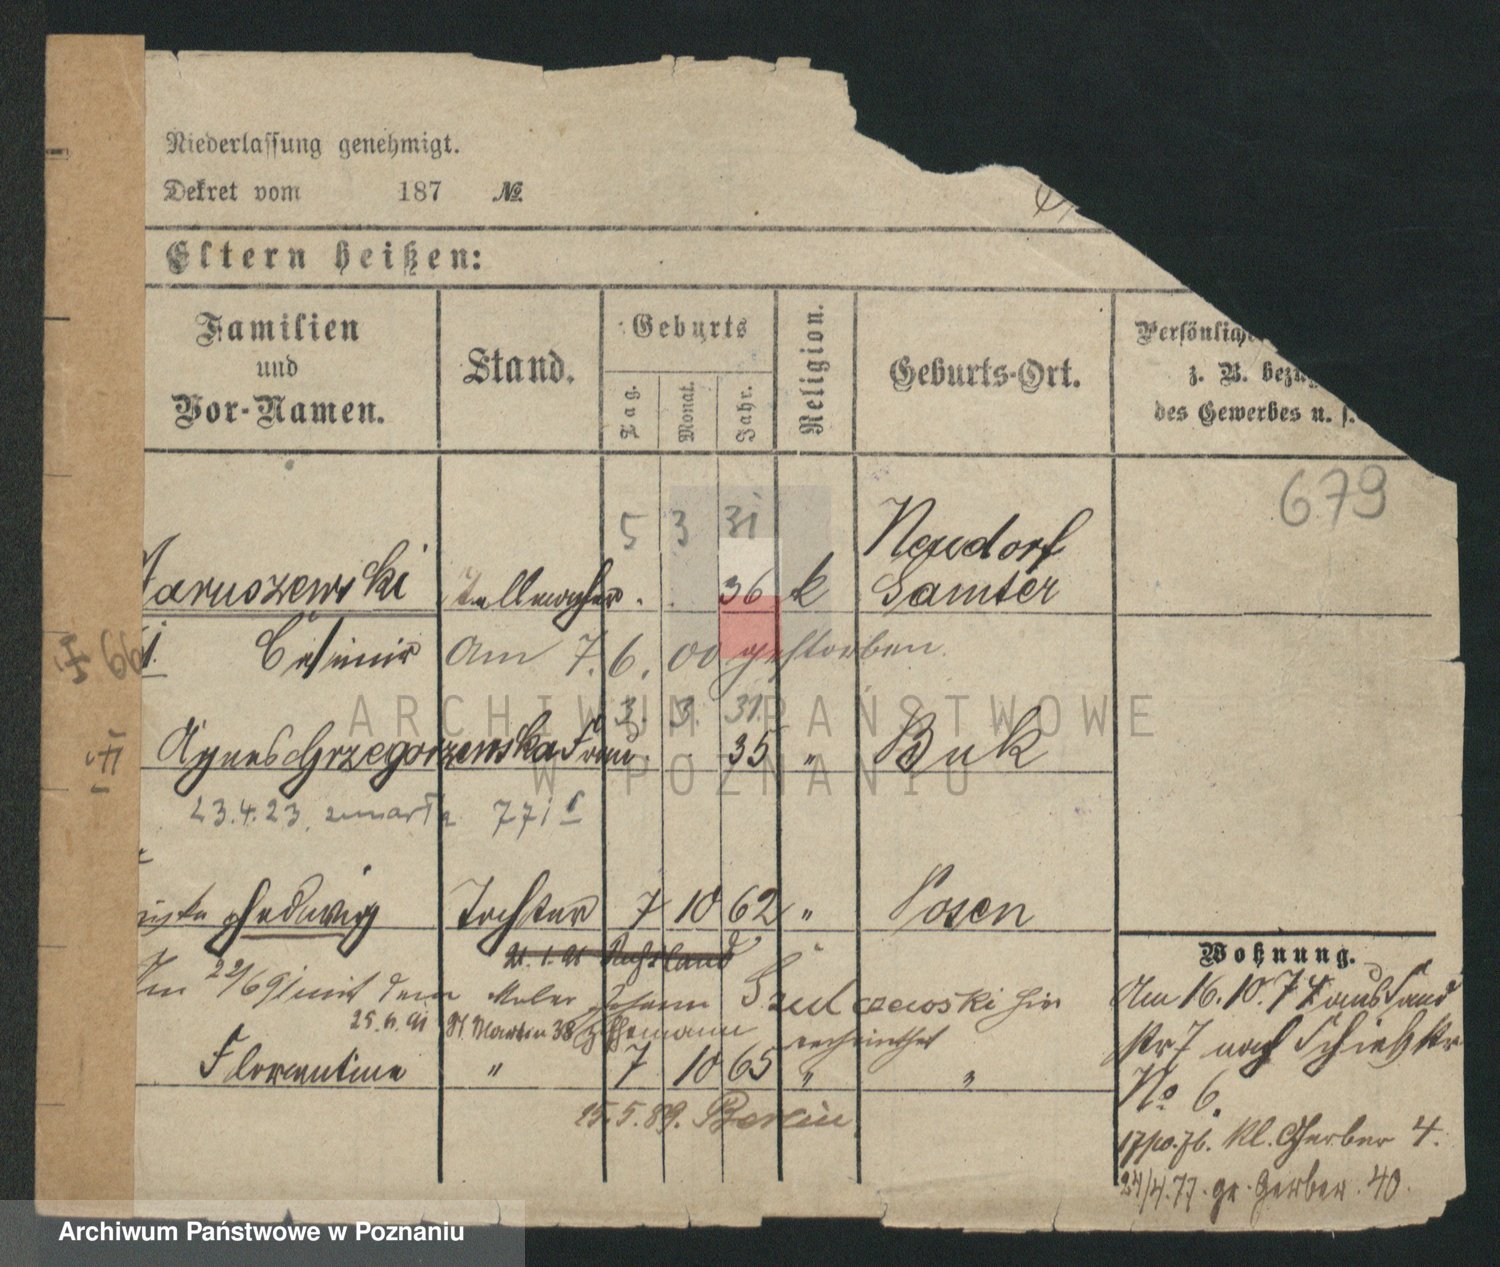 Niederlassung genehmigt.
Dekret vom 187 №
Eltern heißen:
Familien
und
Vor-Namen.
Stand.
Geburts
Tag.
Monat.
Jahr.
Religion.
Geburts-Ort.
Persönliche
z. B. bezüg
des Gewerbes u. s.
679
5 3 31
Neudorf
Jaruszewski 36 k Samter
I 66
Casimir Am 7. 6. 00 gestorben.
3. 3. 31.
III
Agnes Grzegorzewska Frau 35 " Buk
23.4.23. zmarła 771
Hedwig Tochter 7 10 62 " Posen
21.1.91 Russland
Am 22/6 91 mit dem Maler Johann Szulczewski hier
25.6.91 St Martin 38 z Ehemann verheirathet
Florentine " 7 10 65 " "
15.5.89. Berlin
Wohnung.
Am 16.10.74 aus Sand
str 7 nach Schießstr
No 6.
17/10.76. kl. Gerber 4.
24/4.77. gr. Gerber. 40.
ARCHIWUM PAŃSTWOWE
W POZNANIU
Archiwum Państwowe w Poznaniu